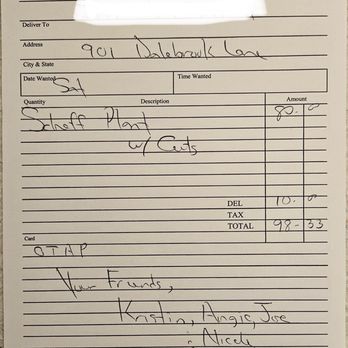 Deliver To
Address 901 Dalebrook Lane
City & State
Date Wanted Sat Time Wanted
Quantity Description Amount
Scheff Plant 80.0
w/ Cuts
DEL 10.0
TAX
TOTAL 98-33
Card
OTAP
Your Friends,
Kristin, Angie, Joe
: Nicole